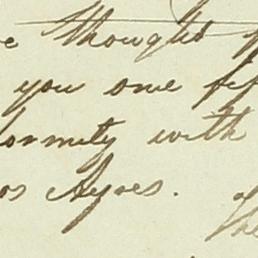 e thought
you one fif
ormity with
os Ayres.
The